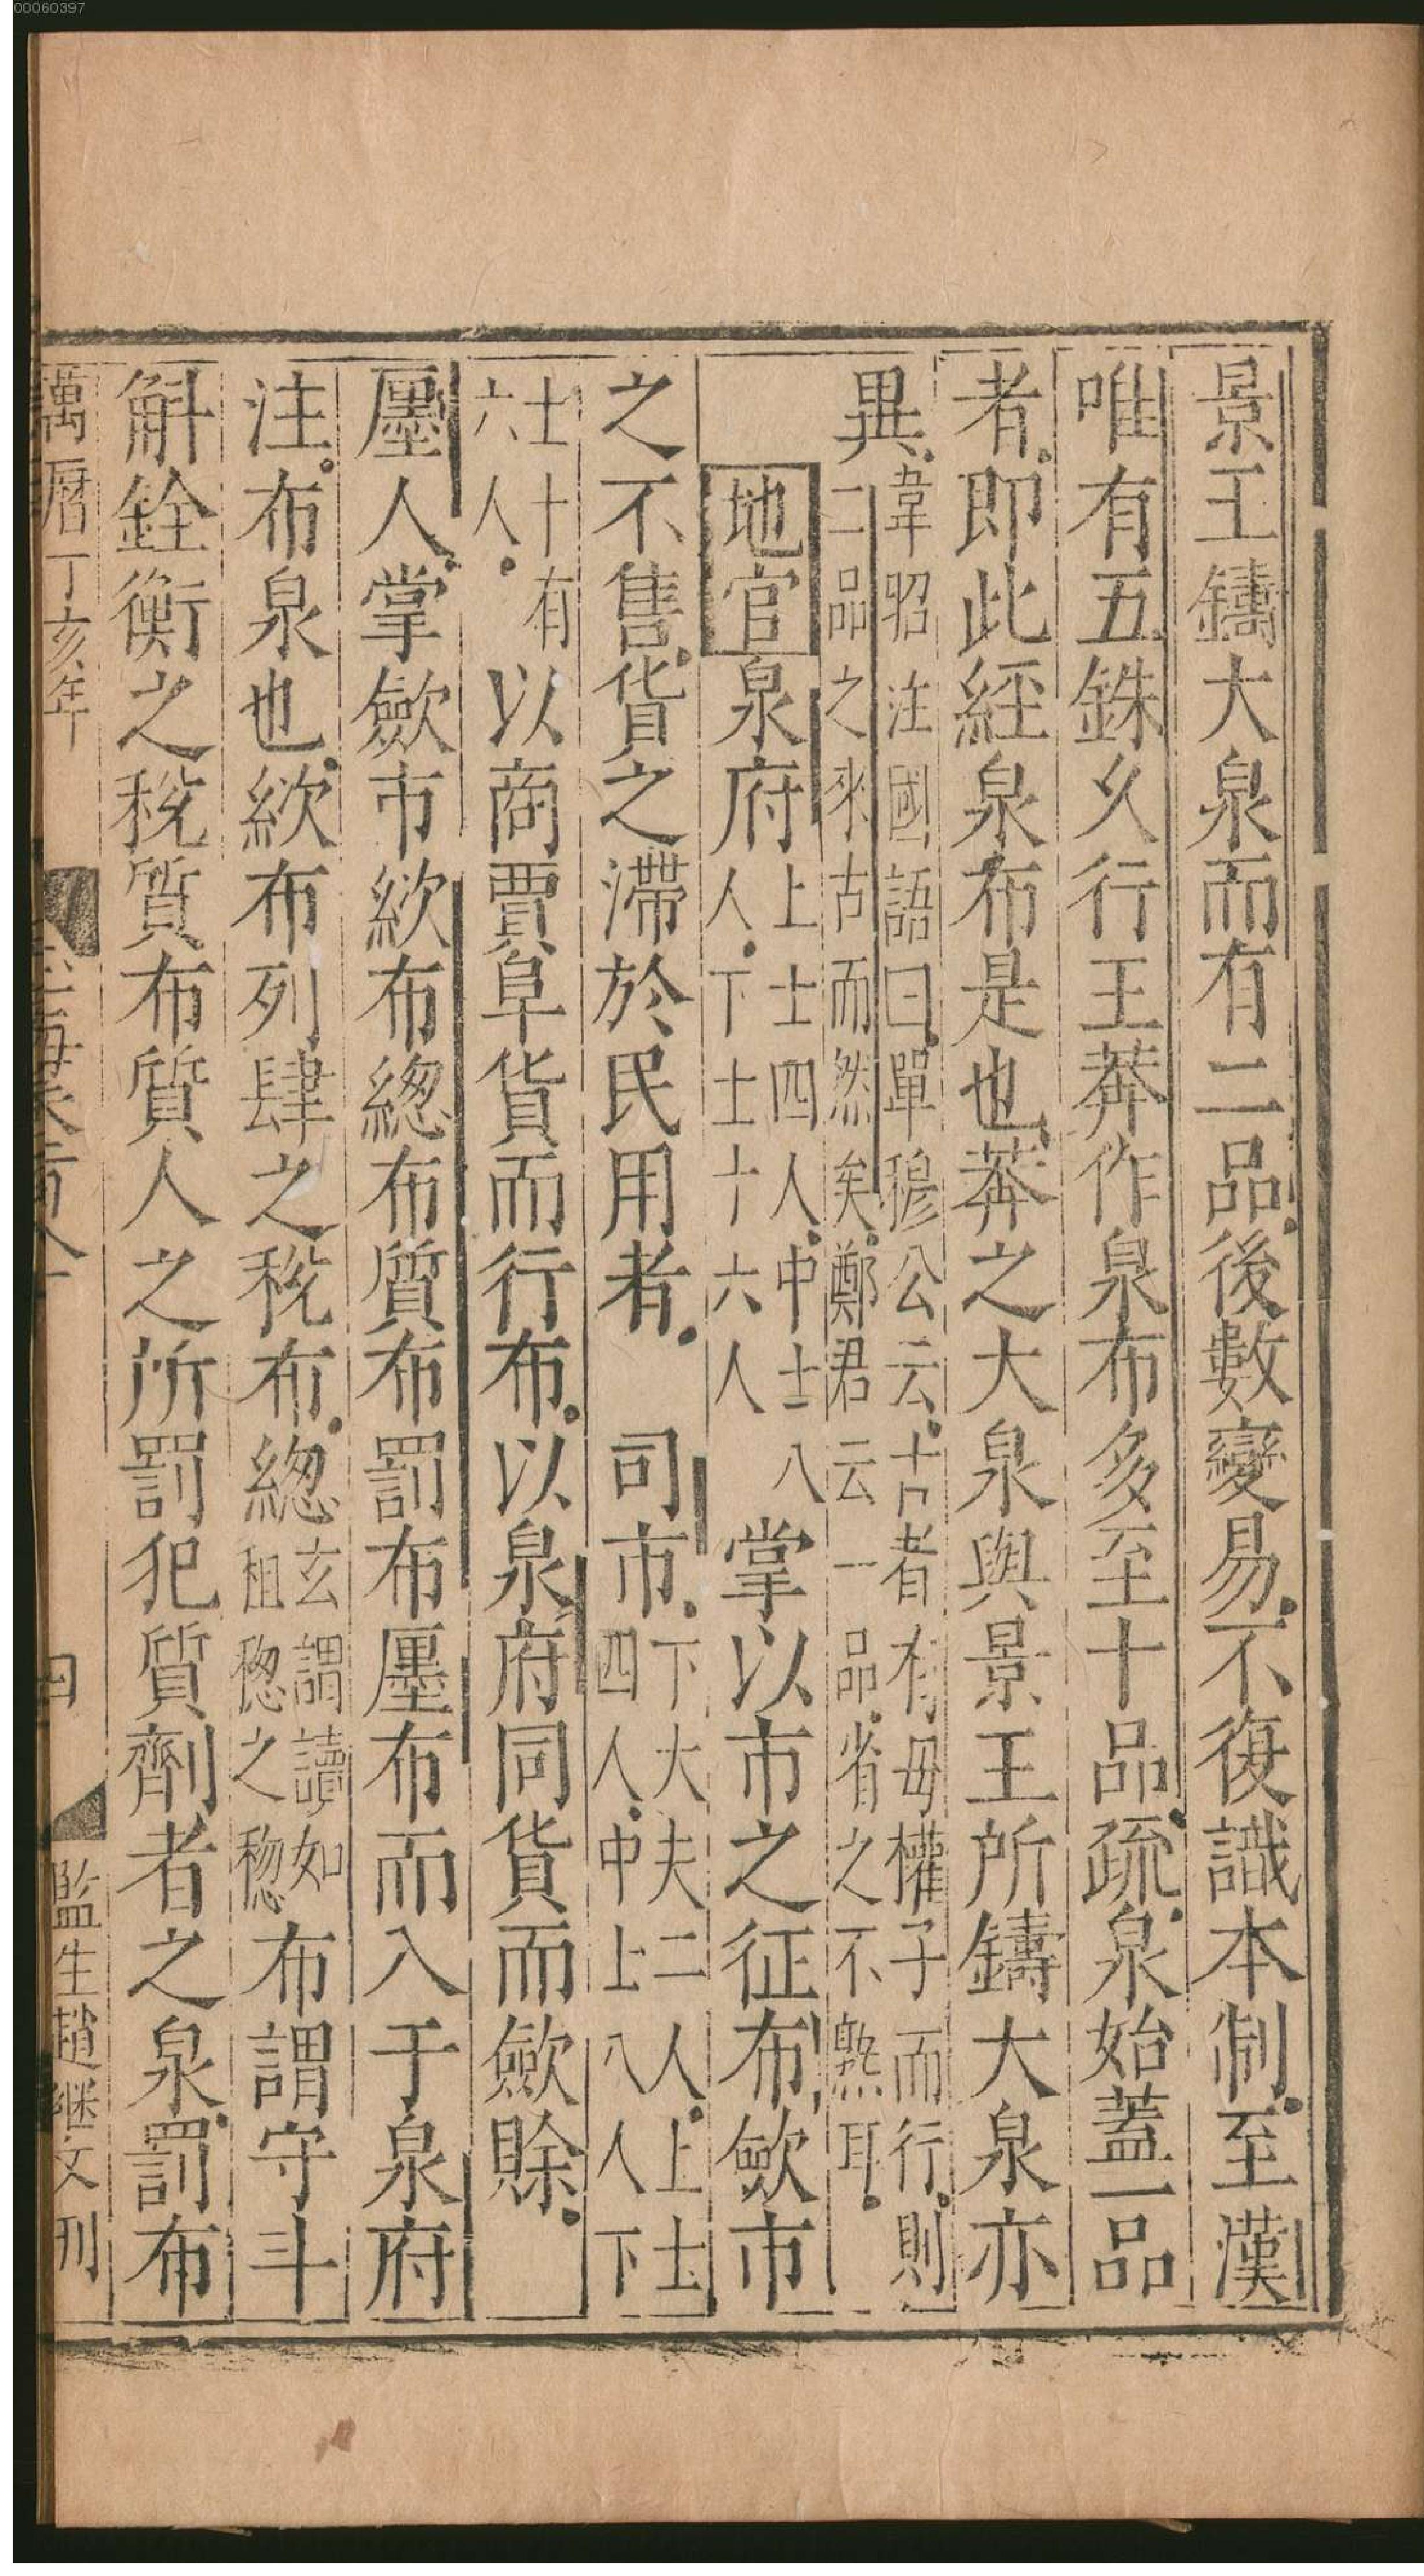 00060397
景王鑄大泉而有二品後數變易不復識本制至漢
唯有五銖久行王莽作泉布多至十品疏泉始蓋一品
者即此經泉布是也莽之大泉與景王所鑄大泉亦
異韋昭注國語曰單穆公云古者有母權子而行則
二品之來古而然矣鄭君云一品省之不熟耳
地官泉府上士四人中士八
人下士十六人
掌以市之征布歛市
之不售貨之滯於民用者　司市下大夫二人上士
四人中士八人下
士十有
六人
以商賈阜貨而行布以泉府同貨而歛賒
廛人掌歛市絘布緫布質布罰布廛布而入于泉府
注布泉也絘布列肆之稅布緫玄謂讀如
租稯之稯
布謂守斗
斛銓衡之稅質布質人之所罰犯質劑者之泉罰布
萬曆丁亥年
四
監生趙继文刊